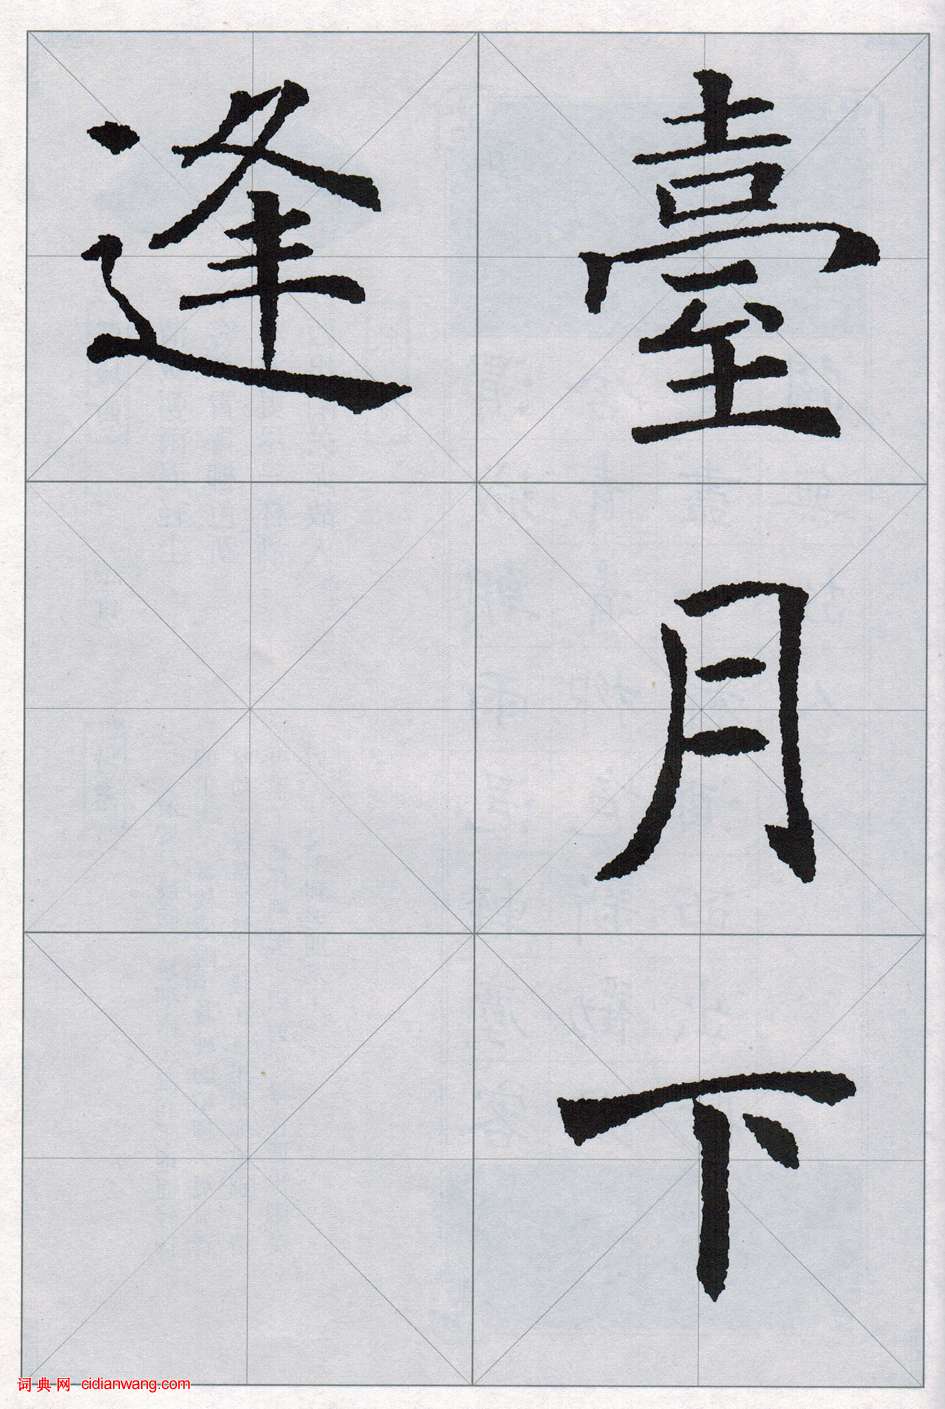 臺月下
逢
词典网 cidianwang.com